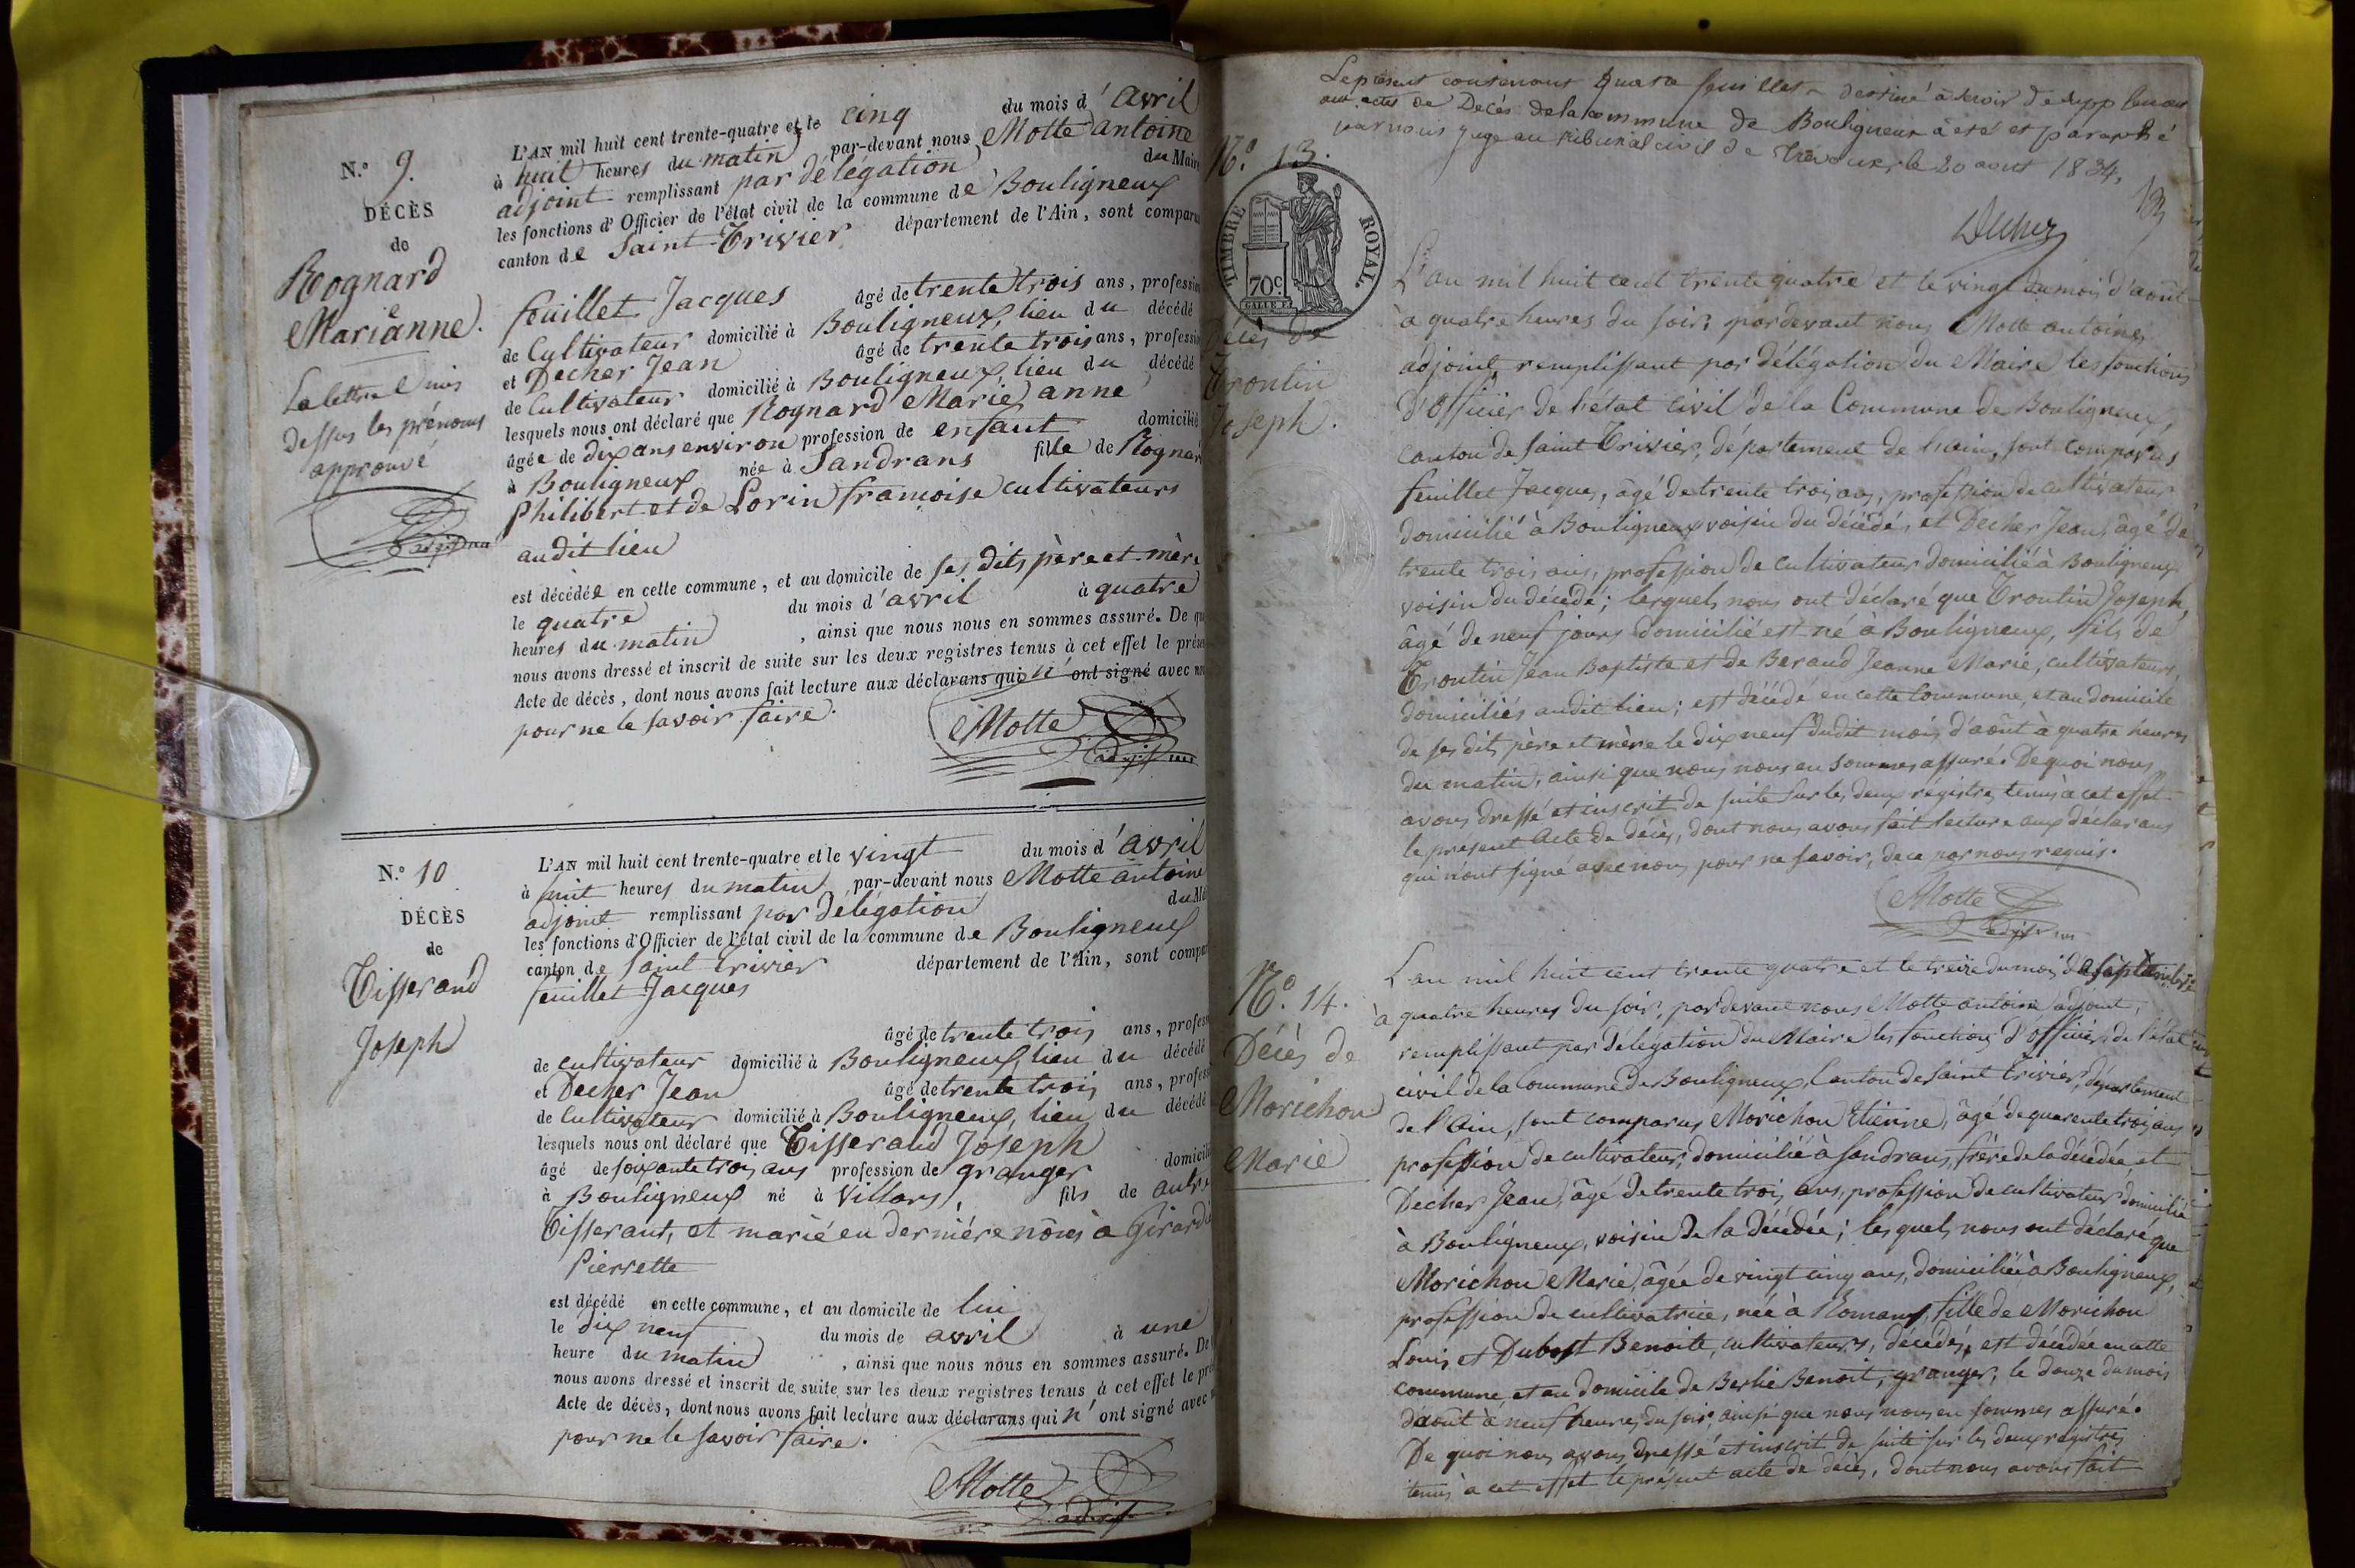 N.o 9.
DÉCÈS
de
Rognard
e
Marianne.
La lettre e mis
dessus les prénoms
approuvé
L'AN mil huit cent trente-quatre et le cinq du mois d'avril
à huit heures du matin par-devant nous Motte antoine
adjoint remplissant par délégation du Maire
les fonctions d'Officier de l'état civil de la commune de Bouligneux
canton de Saint-Trivier département de l'Ain, sont comparu
feuillet Jacques âgé de trente trois ans, profession
de Cultivateur domicilié à Bouligneux, lieu du décédé
et Decher Jean âgé de trente trois ans, profession
de Cultivateur domicilié à Bouligneux lieu du décédé
lesquels nous ont déclaré que Rognard Marie anne
âgée de dix ans environ profession de enfant domicilié
à Bouligneux née à Sandrans fille de Rognar
Philibert et de Lorin françoise cultivateurs
audit lieu
est décédée en cette commune, et au domicile de ses dits père et mère
le quatre du mois d'avril à quatre
heures du matin, ainsi que nous nous en sommes assuré. De qu
nous avons dressé et inscrit de suite sur les deux registres tenus à cet effet le prése
Acte de décès, dont nous avons fait lecture aux déclarans qui n'ont signé avec no
pour ne le savoir faire.
Motte
adjt
N.o 10
DÉCÈS
de
Tisserand
Joseph
L'AN mil huit cent trente-quatre et le vingt du mois d'avril
à huit heures du matin par-devant nous Motte antoine
adjoint remplissant par délégation du Ma
les fonctions d'Officier de l'état civil de la commune de Bouligneux
canton de Saint Trivier département de l'Ain, sont compar
feuillet Jacques
âgé de trente trois ans, profess
de cultivateur domicilié à Bouligneux, lieu du décédé
et Decher Jean âgé de trente trois ans, profess
de Cultivateur domicilié à Bouligneux, lieu du décédé
lesquels nous ont déclaré que Tisserand Joseph
âgé de soixante trois ans profession de granger domicili
à Bouligneux né à Villars, fils de autre
Tisserant, et marié en dernière nôces à Girard
Pierrette
est décédé en cette commune, et au domicile de lui
le dix neuf du mois de avril à une
heure du matin, ainsi que nous nous en sommes assuré. De
nous avons dressé et inscrit de suite sur les deux registres tenus à cet effet le pré
Acte de décès, dont nous avons fait lecture aux déclarans qui n'ont signé avec
pour ne le savoir faire.
Motte
adjt
Le présent contenant quatre feuilles destiné à servir de supplément
aux actes de Décès de la commune de Bouligneux à été et paraphé
par nous juge au tribunal civil de Trévoux, le 20 aout 1834.
N.o 13.
TIMBRE ROYAL.
70c
Décès de
Trontin
Joseph.
L'an mil huit cent trente quatre et le vingt du mois d'août
à quatre heures du soir, pardevant nous Motte antoine,
adjoint, remplissant par délégation du Maire les fonctions
d'Officier de l'état civil de la Commune de Bouligneux,
canton de Saint Trivier, département de l'ain, sont comparus
feuillet Jacques, âgé de trente trois ans, profession de cultivateur
domicilié à Bouligneux voisin du décédé, et Decher Jean, âgé de
trente trois ans, profession de cultivateur domicilié à Bouligneux
voisin du décédé; lesquels nous ont déclaré que Trontin Joseph,
âgé de neuf jours domicilié est né à Bouligneux, fils de
Trontin Jean Baptiste et de Beraud Jeanne Marie, cultivateurs,
domiciliés audit lieu; est décédé en cette Commune, et au domicile
de ses dits père et mère le dix neuf dudit mois d'août à quatre heures
du matin, ainsi que nous nous en sommes assuré. De quoi nous
avons dressé et inscrit de suite sur les deux régistres tenus à cet effet
le présent Acte de décès, dont nous avons fait lecture aux déclarans
qui n'ont signé avec nous pour ne savoir, de ce par nous requis.
Motte
adjt
N.o 14.
Décès de
Morichon
Marie
L'an mil huit cent trente quatre et le treize du mois de septembre
à quatre heures du soir, pardevant nous Motte antoine adjoint,
remplissant par délégation du Maire les fonctions d'officier de l'état
civil de la Commune de Bouligneux, Canton de Saint Trivier, département
de l'Ain, sont comparus Morichon Etienne, âgé de quarente trois ans
profession de cultivateur, domicilié à Sandrans, frère de la décédée et
Decher Jean, âgé de trente trois ans, profession de cultivateur domicilié
à Bouligneux, voisin de la décédée; lesquels nous ont déclaré que
Morichon Marie, âgée de vingt cinq ans, domiciliée à Bouligneux,
profession de cultivatrice, née à Romans, fille de Morichon
Louis et Dubost Benoite, cultivateurs, décédés, est décédée en cette
commune, et au domicile de Berlie Benoit, granger, le douze du mois
d'août à neuf heures du soir, ainsi que nous nous en sommes assuré.
De quoi nous avons dressé et inscrit de suite sur les deux registres
tenus à cet effet le présent acte de décès, dont nous avons fait